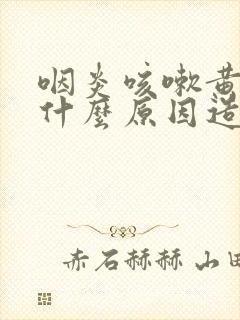 咽炎咳嗽黄
什麼原因造
赤石赫赫 山田